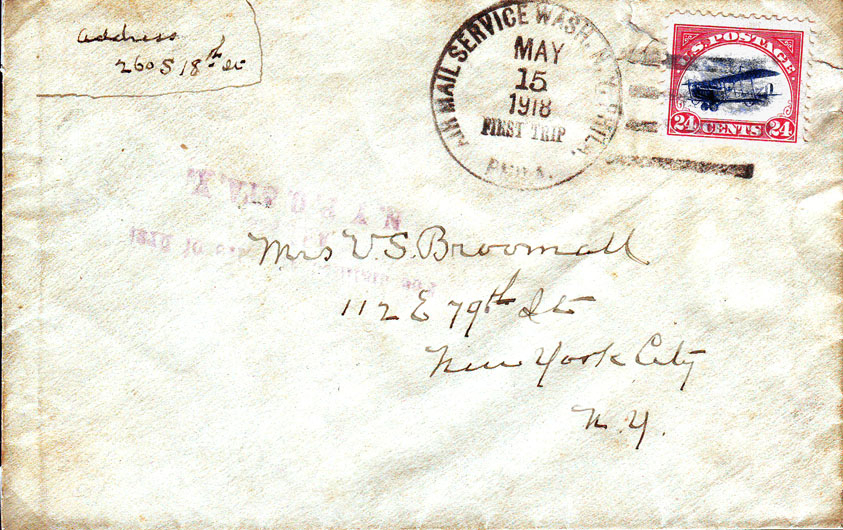 address
260 S 18th St
AIR MAIL SERVICE WASH. N.Y. PHILA.
MAY
15
1918
FIRST TRIP
PHILA.
U.S. POSTAGE
24 CENTS 24
N.Y.P.O.
Mrs V.S. Broomall
112 E 79th St
New York City
N.Y.